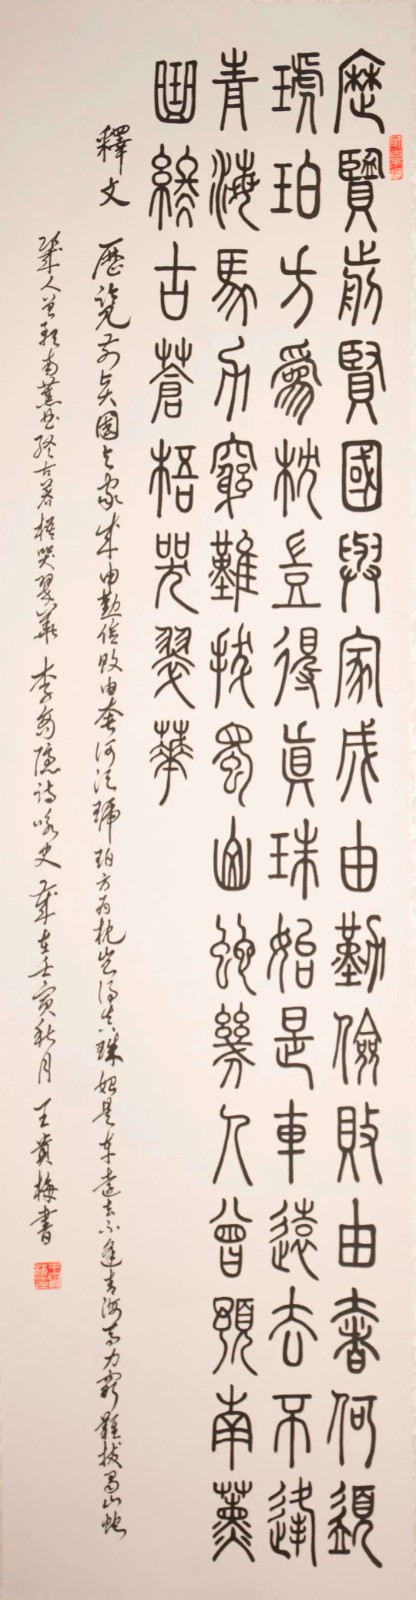 歷覽前賢國與家成由勤儉敗由奢何須
琥珀方為枕豈得真珠始是車遠去不逢
青海馬力窮難拔蜀山蛇幾人曾預南薰
曲終古蒼梧哭翠華
釋文 歷覽前賢國與家成由勤儉敗由奢何須琥珀方為枕豈得真珠始是車遠去不逢青海馬力窮難拔蜀山蛇
幾人曾預南薰曲終古蒼梧哭翠華 李商隱詩咏史 歲在壬寅秋月 王貴梅書